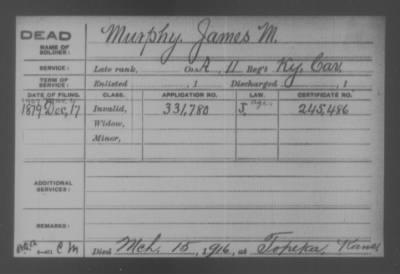 DEAD
NAME OF SOLDIER: Murphy, James M.
SERVICE: Late rank, Co. A, 11 Reg't Ky. Cav.
TERM OF SERVICE: Enlisted , 1 Discharged , 1
DATE OF FILING. CLASS. APPLICATION NO. LAW. CERTIFICATE NO.
1879 Dec. 17 Invalid, 331,780 J. age. 245,486
Widow,
Minor,
ADDITIONAL SERVICES:
REMARKS:
C M Died Mch. 15, 1916, at Topeka, Kans